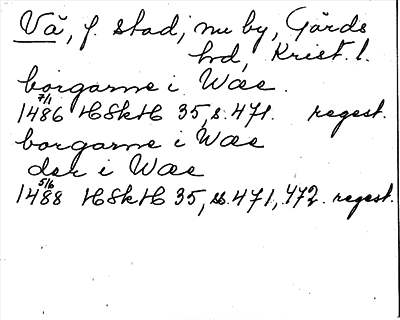 Vä, f. stad, nu by, Gärds
hd, Krist. l.
borgarne i Wäe.
7/1
1486 HSkH 35, s. 471. regest.
borgarne i Wäe
der i Wäe
5/6
1488 HSkH 35, ss. 471, 472. regest.